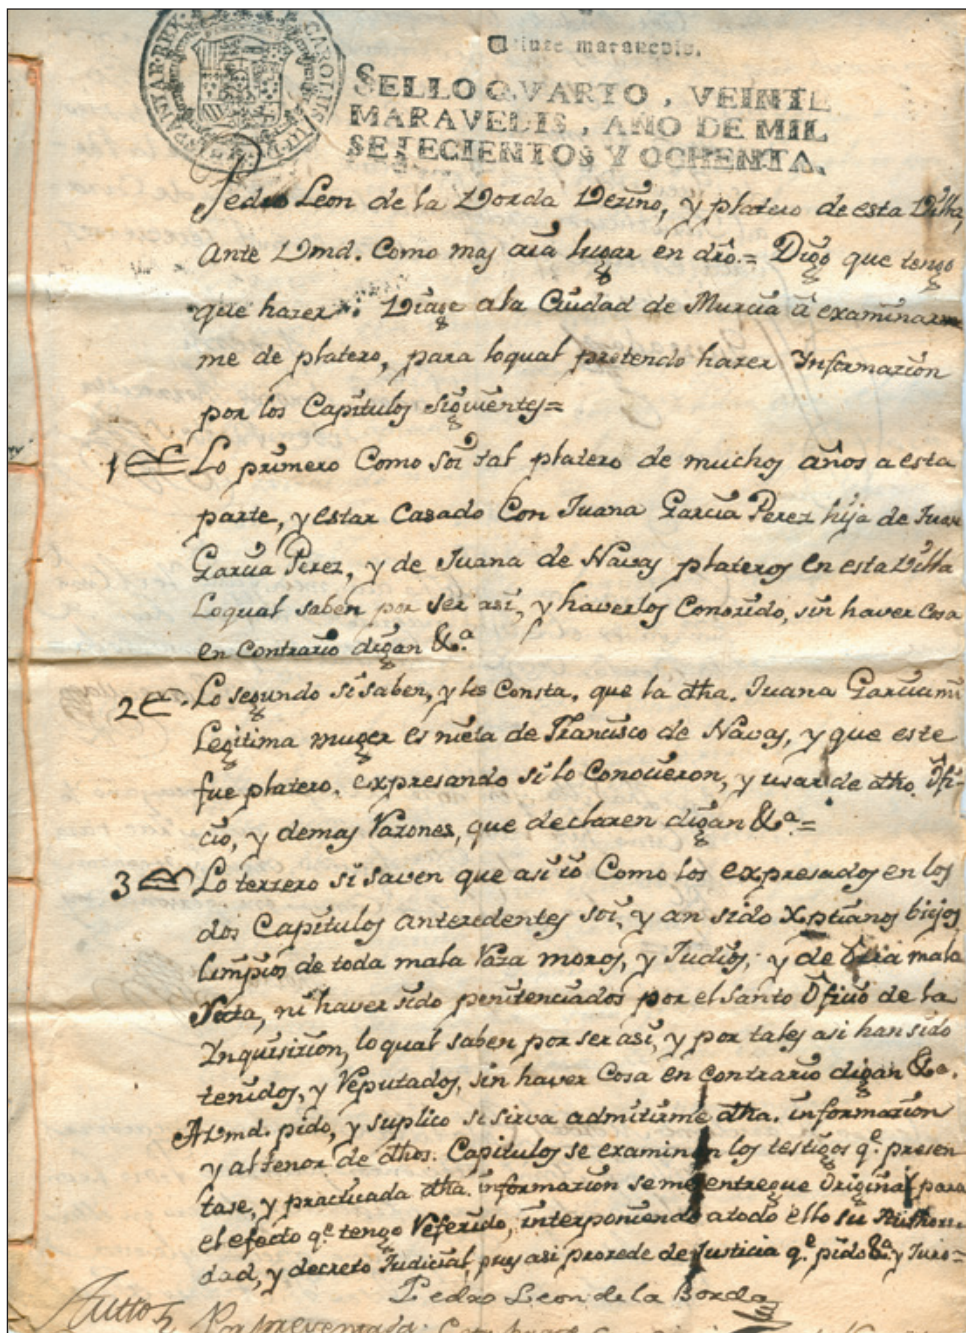 CAROLUS III D G HISPANIAR REX
Veinte maravedis.
SELLO QVARTO, VEINTE
MARAVEDIS, AÑO DE MIL
SETECIENTOS Y OCHENTA.
Pedro Leon de la Vorda Vezino, y platero de esta Villa,
Ante Vmd. Como mas aia lugar en dro.= Digo que tengo
que hazer Viage a la Ciudad de Murcia â examinar=
me de platero, para loqual pretendo hazer Informazion
por los Capitulos siguientes=
1 Lo primero Como soi tal platero de muchos años a esta
parte, y estar Casado Con Juana Garcia Perez hija de Juan
Garcia Perez, y de Juana de Navas plateros en esta Villa
Loqual saben por ser asi, y haverlos Conozido, sin haver Cosa
en Contrario digan &.ª
2 Lo segundo si saben, y les Consta, que la dha. Juana Garcia mi
Legitima muger es nieta de Francisco de Navas, y que este
fue platero, expresando si lo Conocieron, y usar de dho. Ofi=
cio, y demas Razones, que declaren digan &ª.=
3 Lo terzero si saven que asi io Como los expresados en los
dos Capitulos antezedentes soi, y an sido Xptianos biejos
limpios de toda mala Raza moros, y Judios, y de otra mala
Secta, ni haver sido penitenciados por el Santo Ofizio de la
Inquisizion, lo qual saben por ser asi, y por tales asi han sido
tenidos, y Reputados, sin haver Cosa en Contrario digan &ª.
A Vmd. pido, y suplico se sirva admitirme dha. informazion
y al tenor de dhos. Capitulos se examinen los testigos q.e presen
tase, y practicada dha. informazion se me entregue Original para
el efecto q.e tengo Referido, interponiendo a todo ello su Authori
dad, y decreto Judicial, pues asi prozede de Justicia q.e pido &ª. y Juro=
Pedro Leon de la Borda
Autto